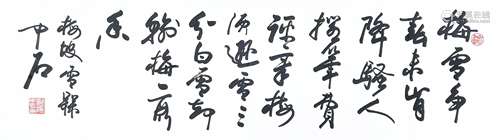 梅雪争
春未肯
降騷人
擱筆費
評章梅
須遜雪三
分白雪却
輸梅一段
香
梅坡雪槑
中石